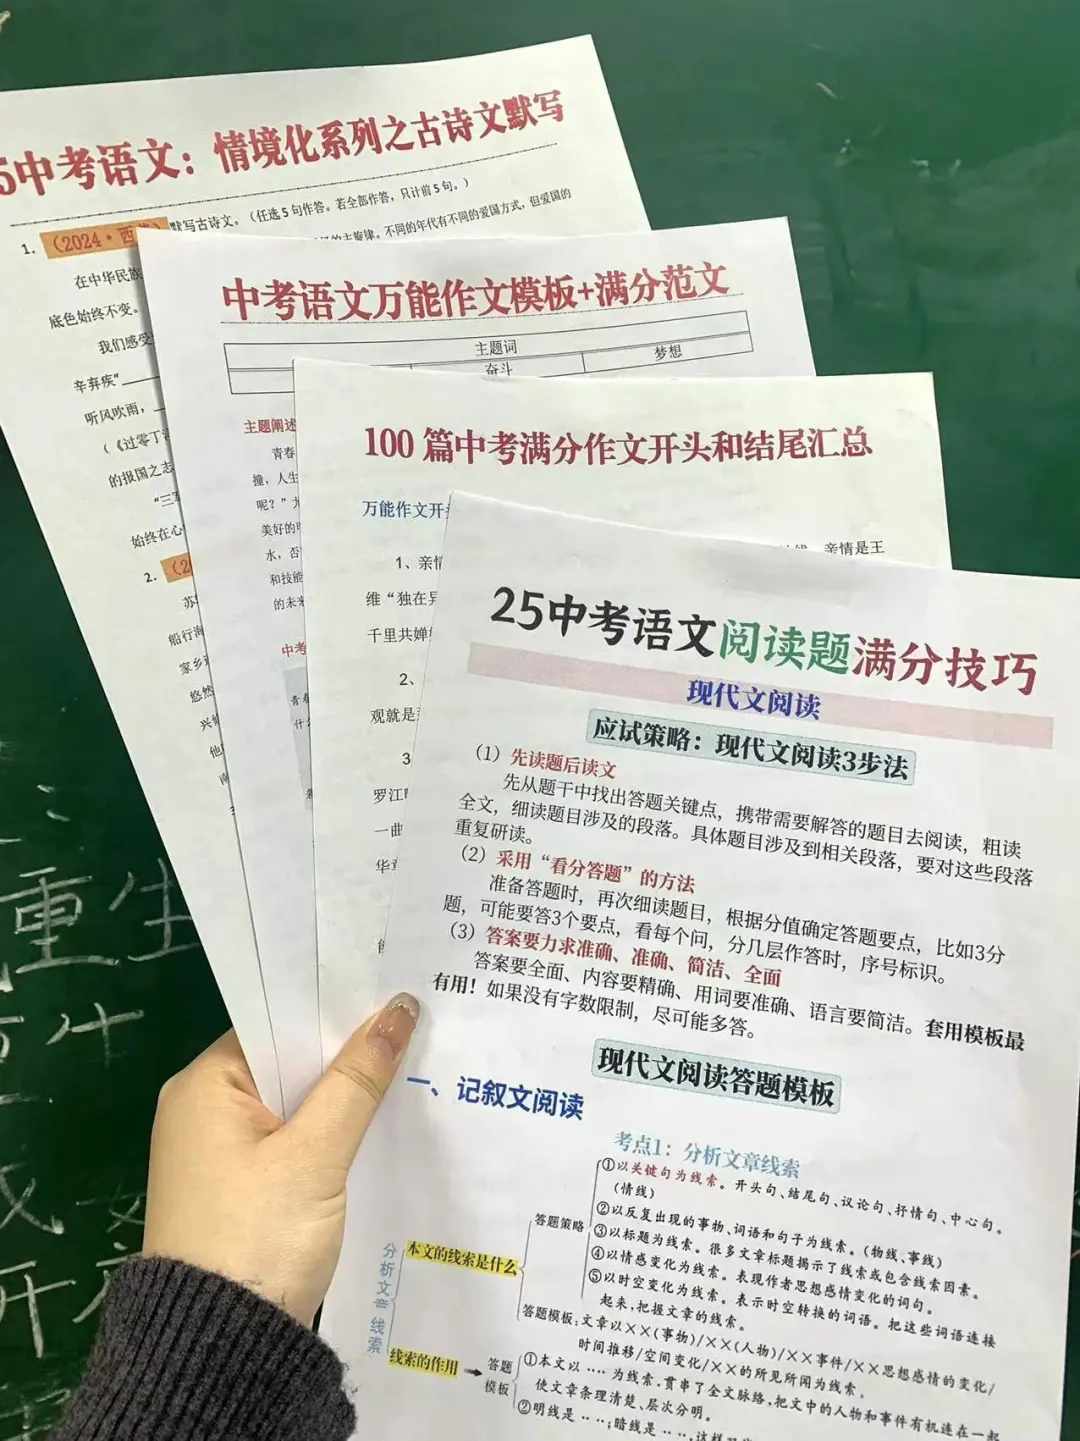 5中考语文：情境化系列之古诗文默写
1.（2024·西 默写古诗文。（任选5句作答。若全部作答，只计前5句。）
在中华民族 的主旋律。不同的年代有不同的爱国方式，但爱国的
底色始终不变。
我们感受
辛弃疾“
听风吹雨，
（《过零丁
的报国之志
“三军
始终在心
2.（2
苏
船行海
家乡
悠然
兴
他
南
中考语文万能作文模板+满分范文
主题词
奋斗
梦想
主题阐述
青春
撞，人生
呢？”
美好的
水，否
和技能
的未来
中考
青春
什
100 篇中考满分作文开头和结尾汇总
万能作文开头
1、亲情 线，亲情是王
维“独在异
千里共婵
2、
观就是
3
罗江
一曲
华章
25中考语文阅读题满分技巧
现代文阅读
应试策略：现代文阅读3步法
（1）先读题后读文
先从题干中找出答题关键点，携带需要解答的题目去阅读，粗读
全文，细读题目涉及的段落。具体题目涉及到相关段落，要对这些段落
重复研读。
（2）采用“看分答题”的方法
准备答题时，再次细读题目，根据分值确定答题要点，比如3分
题，可能要答3个要点，看每个问，分几层作答时，序号标识。
（3）答案要力求准确、准确、简洁、全面
答案要全面、内容要精确、用词要准确、语言要简洁。套用模板最
有用！如果没有字数限制，尽可能多答。
现代文阅读答题模板
一、记叙文阅读
考点1：分析文章线索
分析文章线索
本文的线索是什么
答题策略
①以关键句为线索。开头句、结尾句、议论句、抒情句、中心句。
（情线）
②以反复出现的事物、词语和句子为线索。（物线、事线）
③以标题为线索。很多文章标题揭示了线索或包含线索因素。
④以情感变化为线索。表现作者思想感情变化的词句。
⑤以时空变化为线索。表示时空转换的词语。把这些词语连接
起来，把握文章的线索。
答题模板：文章以××(事物)/××(人物)/××事件/××思想感情的变化/
时间推移/空间变化/××的所见所闻为线索，
线索的作用
答题
模板
①本文以 ···· 为线索，贯串了全文脉络，把文中的人物和事件有机连在一起
使文章条理清楚、层次分明。
②明线是 ·· ··；暗线是 ·· ··，这样
重生